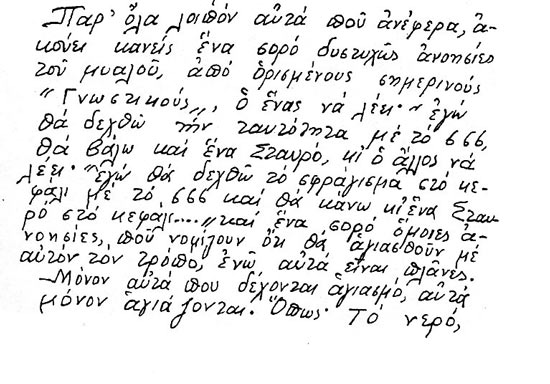 Παρ' ὅλα λοιπόν αὐτά ποῦ ἀνέφερα, ἀ-
κούει κανείς ἕνα σορό δυστυχῶς ἀνοησίες
τοῦ μυαλοῦ, ἀπό ὁρισμένους σημερινούς
"Γνωστικούς", ὁ ἕνας νά λέει· "ἐγώ
θά δεχθῶ τήν ταυτότητα μέ τό 666,
θά βάλω καί ἕνα Σταυρό, κι ὁ ἄλλος νά
λέει· "ἐγώ θά δεχθῶ τό σφράγισμα στό κε-
φάλι μέ τό 666 καί θά κάνω κι ἕνα Σταυ-
ρό στό κεφάλι...." καί ἕνα σορό ὅμοιες ἀ-
νοησίες, ποῦ νομίζουν ὅτι θά ἁγιασθοῦν μέ
αὐτόν τόν τρόπο, ἐνῶ αὐτά εἶναι πλάνες.
Μόνον αὐτά που δέχονται ἁγιασμό, αὐτά
μόνον ἁγιάζονται. Ὅπως· Τό νερό,